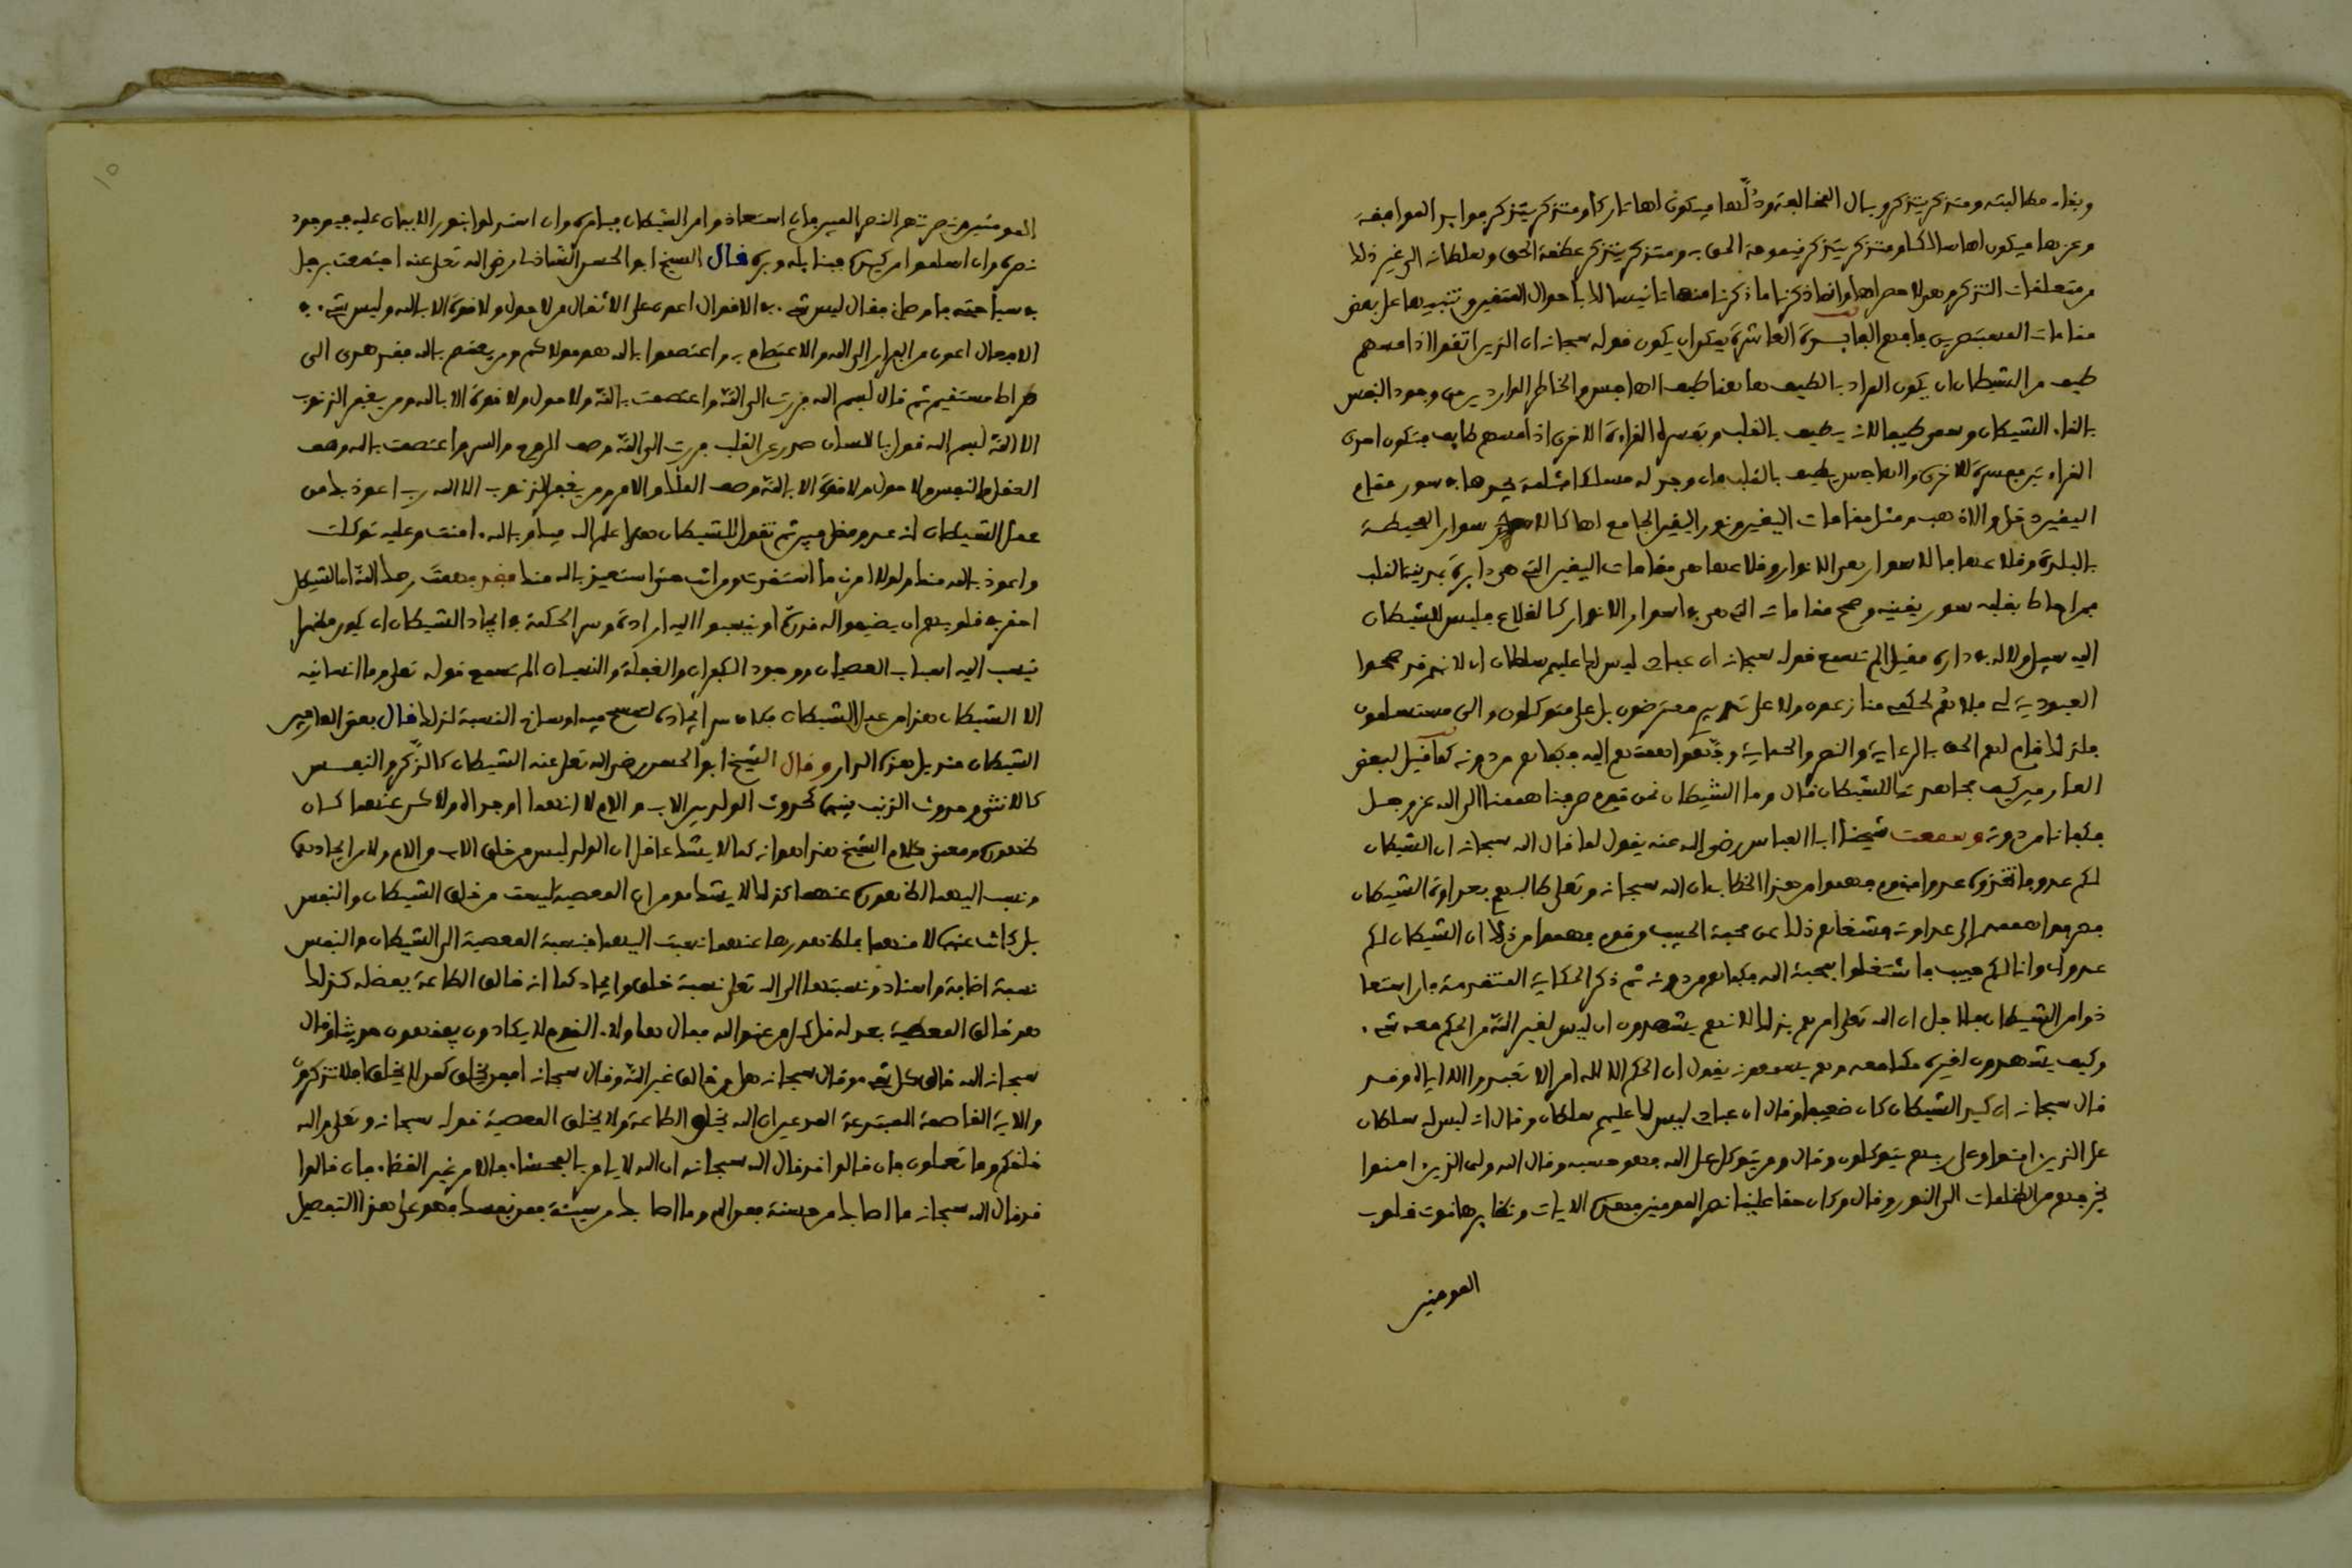 وبقاء مطالبته ومتذكر يتذكر وبال المخالفة وذلها فيكون لها تاركا ومتذكر يتذكر فوايد الموافقة
وعزها فيكون لها سالكا ومتذكر يتذكر قيومية الحق به ومتذكر يتذكر عظمة الحق وسلطانه الى غير ذلك
من متعلقات التذكر وهو لا حصر لها وانما ذكرنا ما ذكرنا منها تانيسا لك باحوال المتقين وتنبيها على بعض
مقامات المستبصرين فافهم الفايدة العاشرة يمكن ان يكون قوله سبحانه ان الذين اتقوا اذا مسهم
طيف من الشيطان ان يكون المراد بالطيف هاهنا طيف الهاجس والخاطر الواردين من وجود النفس
بالقاء الشيطان وسمي طيفا لانه يطيف بالقلب وتفسره القراءة الاخرى اذا مسهم طايف فتكون احدى
القراءتين مفسرة للاخرى والهاجس يطيف بالقلب فان وجد له مسلكا ثلمة يجدها في سور مقام
اليقين دخل والا ذهب ومثل مقامات اليقين ونور اليقين الجامع لها كالاسوار المحيطة
بالبلدة وقلاعها فالاسوار هي الانوار وقلاعها هي مقامات اليقين التي هي دايرة بمدينة القلب
فمن احاط بقلبه سور يقينه وصحح مقاماته التي هي في اسوار الانوار كالقلاع فليس للشيطان
اليه سبيل ولا له في داره مقيل الم تسمع قوله سبحانه ان عبادي ليس لك عليهم سلطان اي لانهم قد صححوا
العبودية لي فلا هم لحكمي منازعون ولا على تدبيري معترضون بل علي متوكلون والي مستسلمون
فلذلك قام لهم الحق بالرعاية والنصر والحماية وجهوا هممهم اليه فكفاهم من دونه كما قيل لبعض
العارفين كيف مجاهدتك للشيطان قال وما الشيطان نحن قوم صرفنا هممنا الى الله عز وجل
فكفانا من دونه وسمعت شيخنا ابا العباس رضي الله عنه يقول لما قال الله سبحانه ان الشيطان
لكم عدو فاتخذوه عدوا فقوم فهموا من هذا الخطاب ان الله سبحانه وتعلى طالبهم بعداوة الشيطان
فصرفوا هممهم الى عداوته فشغلهم ذلك عن محبة الحبيب وقوم فهموا من ذلك ان الشيطان لكم
عدو اي وانا لكم حبيب فاشتغلوا بمحبة الله فكفاهم من دونه ثم ذكر الحكاية المتقدمة فان استعا
ذوا من الشيطان فلاجل ان الله تعلى امرهم بذلك لا انهم يشهدون ان ليس لغير الله من الحكم معه شيء
وكيف يشهدون لغيره حكما معه وهم يسمعونه يقول ان الحكم الا لله امر الا تعبدوا الا اياه وقد
قال سبحانه ان كيد الشيطان كان ضعيفا وقال ان عبادي ليس لك عليهم سلطان وقال انه ليس له سلطان
على الذين امنوا وعلى ربهم يتوكلون وقال ومن يتوكل على الله فهو حسبه وقال الله ولي الذين امنوا
يخرجهم من الظلمات الى النور وقال وكان حقا علينا نصر المومنين فهذه الايات ونظايرها قوت قلوب
المومنين
المومنين ونصرتهم النصر المبين فان استعاذوا من الشيطان فبامره وان استولوا بنور الايمان عليه فبوجود
نصره وان اسلموا من كيده فبتاييده وبره قال الشيخ ابو الحسن الشاذلي رضي الله تعلى عنه اجتمعت برجل
في سياحته فاوصاني فقال ليس شيء في الاقوال اعون على الافعال من لا حول ولا قوة الا بالله وليس شيء في
الافعال اعون من الفرار الى الله والاعتصام به واعتصموا بالله هو مولاكم ومن يعتصم بالله فقد هدي الى
صراط مستقيم ثم قال بسم الله فررت الى الله واعتصمت بالله ولا حول ولا قوة الا بالله ومن يغفر الذنوب
الا الله بسم الله قول باللسان صدر عن القلب فررت الى الله وصف الروح والسر واعتصمت بالله وصف
العقل والنفس ولا حول ولا قوة الا بالله وصف الملك والامر ومن يغفر الذنوب الا الله رب اعوذ بك من
عمل الشيطان انه عدو مضل مبين ثم تقول للشيطان هذا علم الله فيك وبالله امنت وعليه توكلت
واعوذ بالله منك ولولا امرني ما استعذت ومن انت حتى استعيذ بالله منك فقد فهمت رحمك الله ان الشيطان
احقر في قلوبهم ان يضيفوا له قدرة او ينسبوا اليه ارادة وسر الحكمة في ايجاد الشيطان ان يكون مظهرا
ينسب اليه اسباب العصيان ووجود الكفران والغفلة والنسيان الم تسمع قوله تعلى وما انسانيه
الا الشيطان هذا من عمل الشيطان فكان سر ايجاده ليمسح فيه اوساخ النسبة لذلك قال بعض العارفين
الشيطان منديل هذه الدار وقال الشيخ ابو الحسن رضي الله تعلى عنه الشيطان كالذكر والنفس
كالانثى وحدوث الذنب بينهما كحدوث الولد بين الاب والام لا انهما اوجداه ولاكن عنهما كان
ظهوره ومعنى كلام الشيخ هذا انه كما لا يشك عاقل ان الولد ليس من خلق الاب والام ولا من ايجادهما
ونسب اليهما لظهوره عنهما كذلك لا يشك مومن ان المعصية ليست من خلق الشيطان والنفس
بل كانت عنهما لا منهما فلظهورها عنهما نسبت اليهما فنسبة المعصية الى الشيطان والنفس
نسبة اضافة واسناد ونسبتها الى الله تعلى نسبة خلق وايجاد كما انه خالق الطاعة بفضله كذلك
هو خالق المعصية بعدله قل كل من عند الله فمال هاولاء القوم لا يكادون يفقهون حديثا وقال
سبحانه الله خالق كل شيء وقال سبحانه هل من خالق غير الله وقال سبحانه افمن يخلق كمن لا يخلق افلا تذكرون
والاية القاصمة للمبتدعة المدعين ان الله يخلق الطاعة ولا يخلق المعصية قوله سبحانه وتعلى والله
خلقكم وما تعملون فان قالوا قد قال الله سبحانه ان الله لا يامر بالفحشاء فالامر غير القضاء فان قالوا
قد قال الله سبحانه ما اصابك من حسنة فمن الله وما اصابك من سيئة فمن نفسك فهو على هذا التفصيل